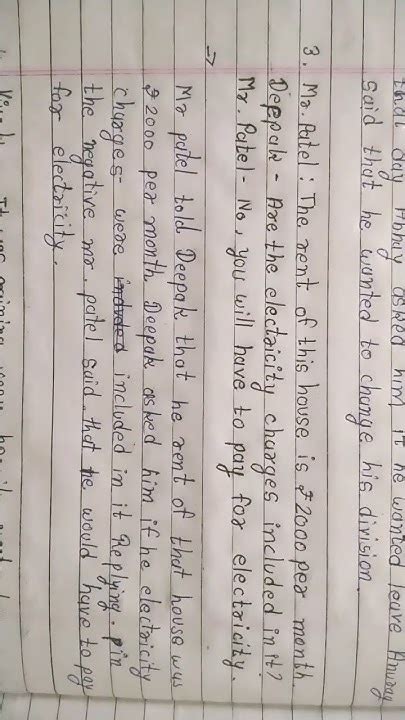 that day Abhay asked him if he wanted leave Anuvay
said that he wanted to change his division.
3. Mr. Patel : The rent of this house is ₹ 2000 per month.
Deepak - Are the electricity charges included in it?
Mr. Patel - No, you will have to pay for electricity.
→
Mr patel told Deepak that he rent of that house was
₹ 2000 per month Deepak asked him if he electricity
charges were included in it Replying. in
the negative mr. patel said that he would have to pay
for electricity.